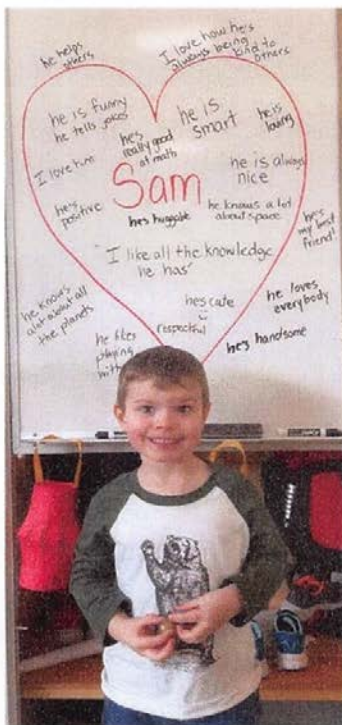 he helps
others
I love how he's
always being
kind to
others
he is funny
he tells jokes
he is
smart
he is
loving
he's
really good
at math
I love him
he is always
nice
Sam
he's
positive
he's huggable
he knows a lot
about space
he's
my best
friend!
"I like all the knowledge
he has"
he knows
alot about all
the planets
he's cute
he loves
everybody
respectful
he likes
playing
he's handsome